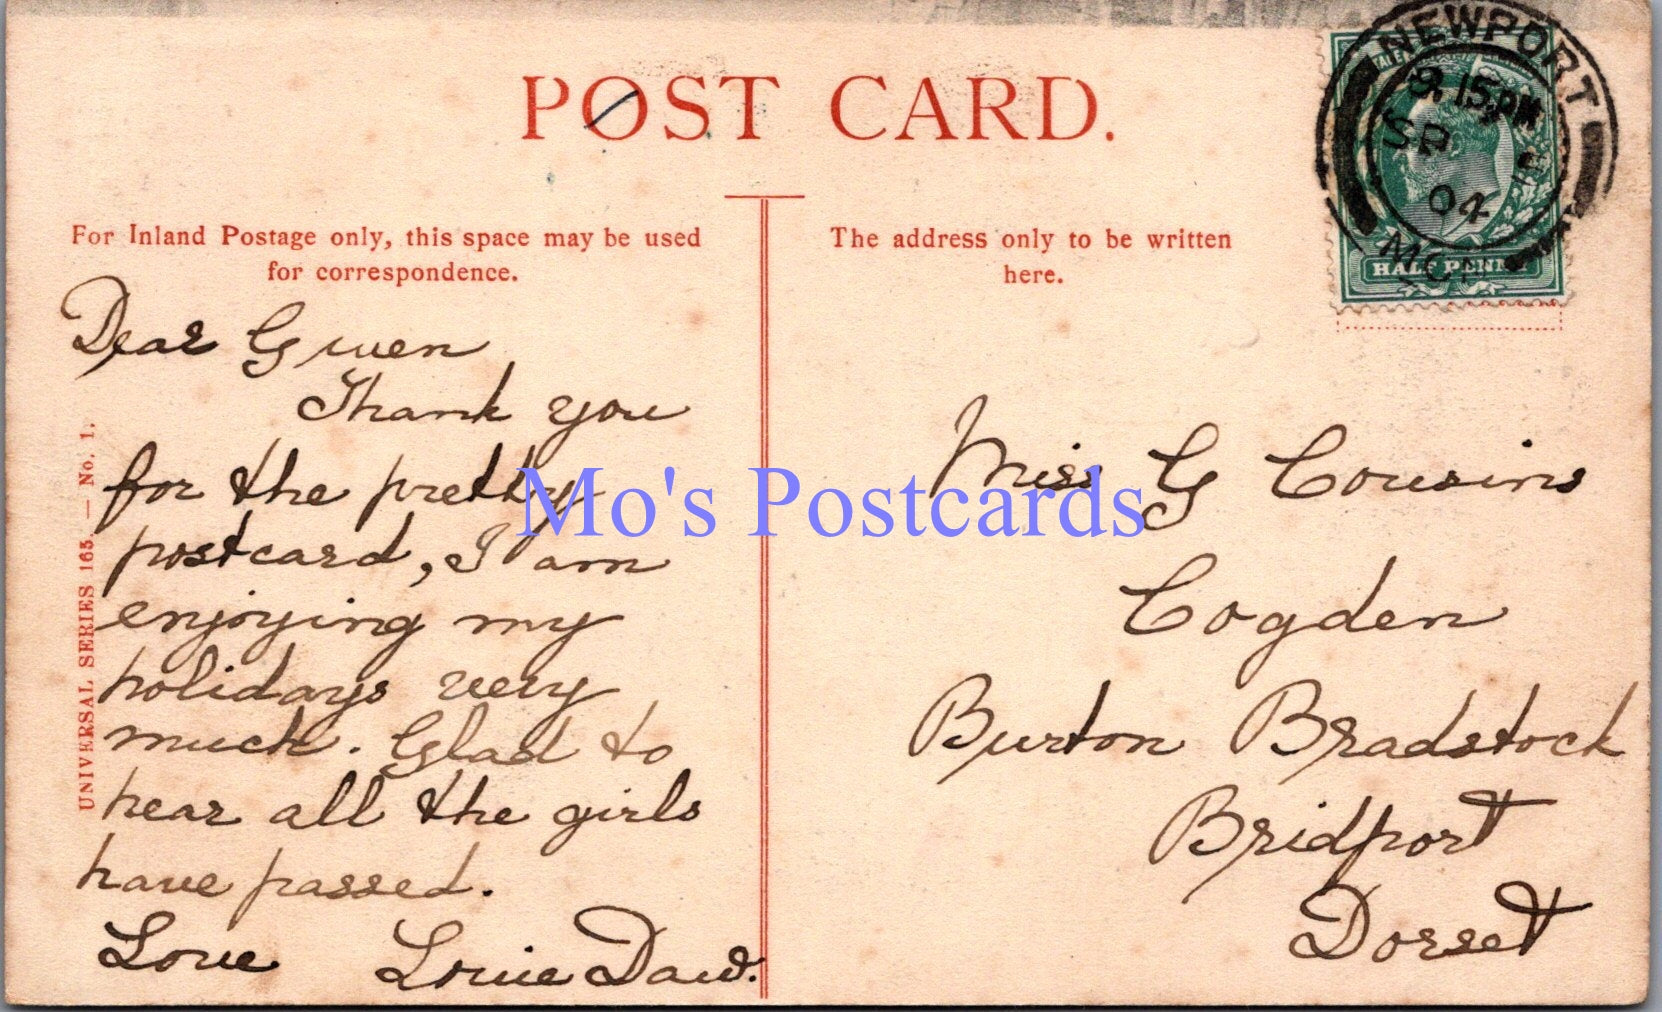 POST CARD.
For Inland Postage only, this space may be used
for correspondence.
Dear Gwen
Thank you
for the pretty
postcard, I am
enjoying my
holidays very
much. Glad to
hear all the girls
have passed.
Love Louie Daw.
UNIVERSAL SERIES 165. — No. 1.
The address only to be written
here.
Miss G Cousins
Cogden
Burton Bradstock
Bridport
Dorset
NEWPORT
9.15 PM
SP
04
MON
HALF PENNY
Mo's Postcards